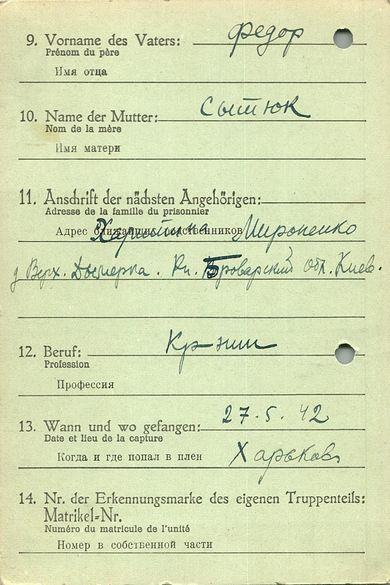 9. Vorname des Vaters: Федор
Prénom du père
Имя отца
10. Name der Mutter: Сытюк
Nom de la mère
Имя матери
11. Anschrift der nächsten Angehörigen:
Adresse de la famille du prisonnier
Адрес ближайших родственников
Харитина Мироненко
д Верх. Дымерка. Рн. Броварский Обл. Киев.
12. Beruf: Кр-нин
Profession
Профессия
13. Wann und wo gefangen: 27.5.42
Date et lieu de la capture
Когда и где попал в плен Харьков
14. Nr. der Erkennungsmarke des eigenen Truppenteils:
Matrikel-Nr.
Numéro du matricule de l'unité
Номер в собственной части